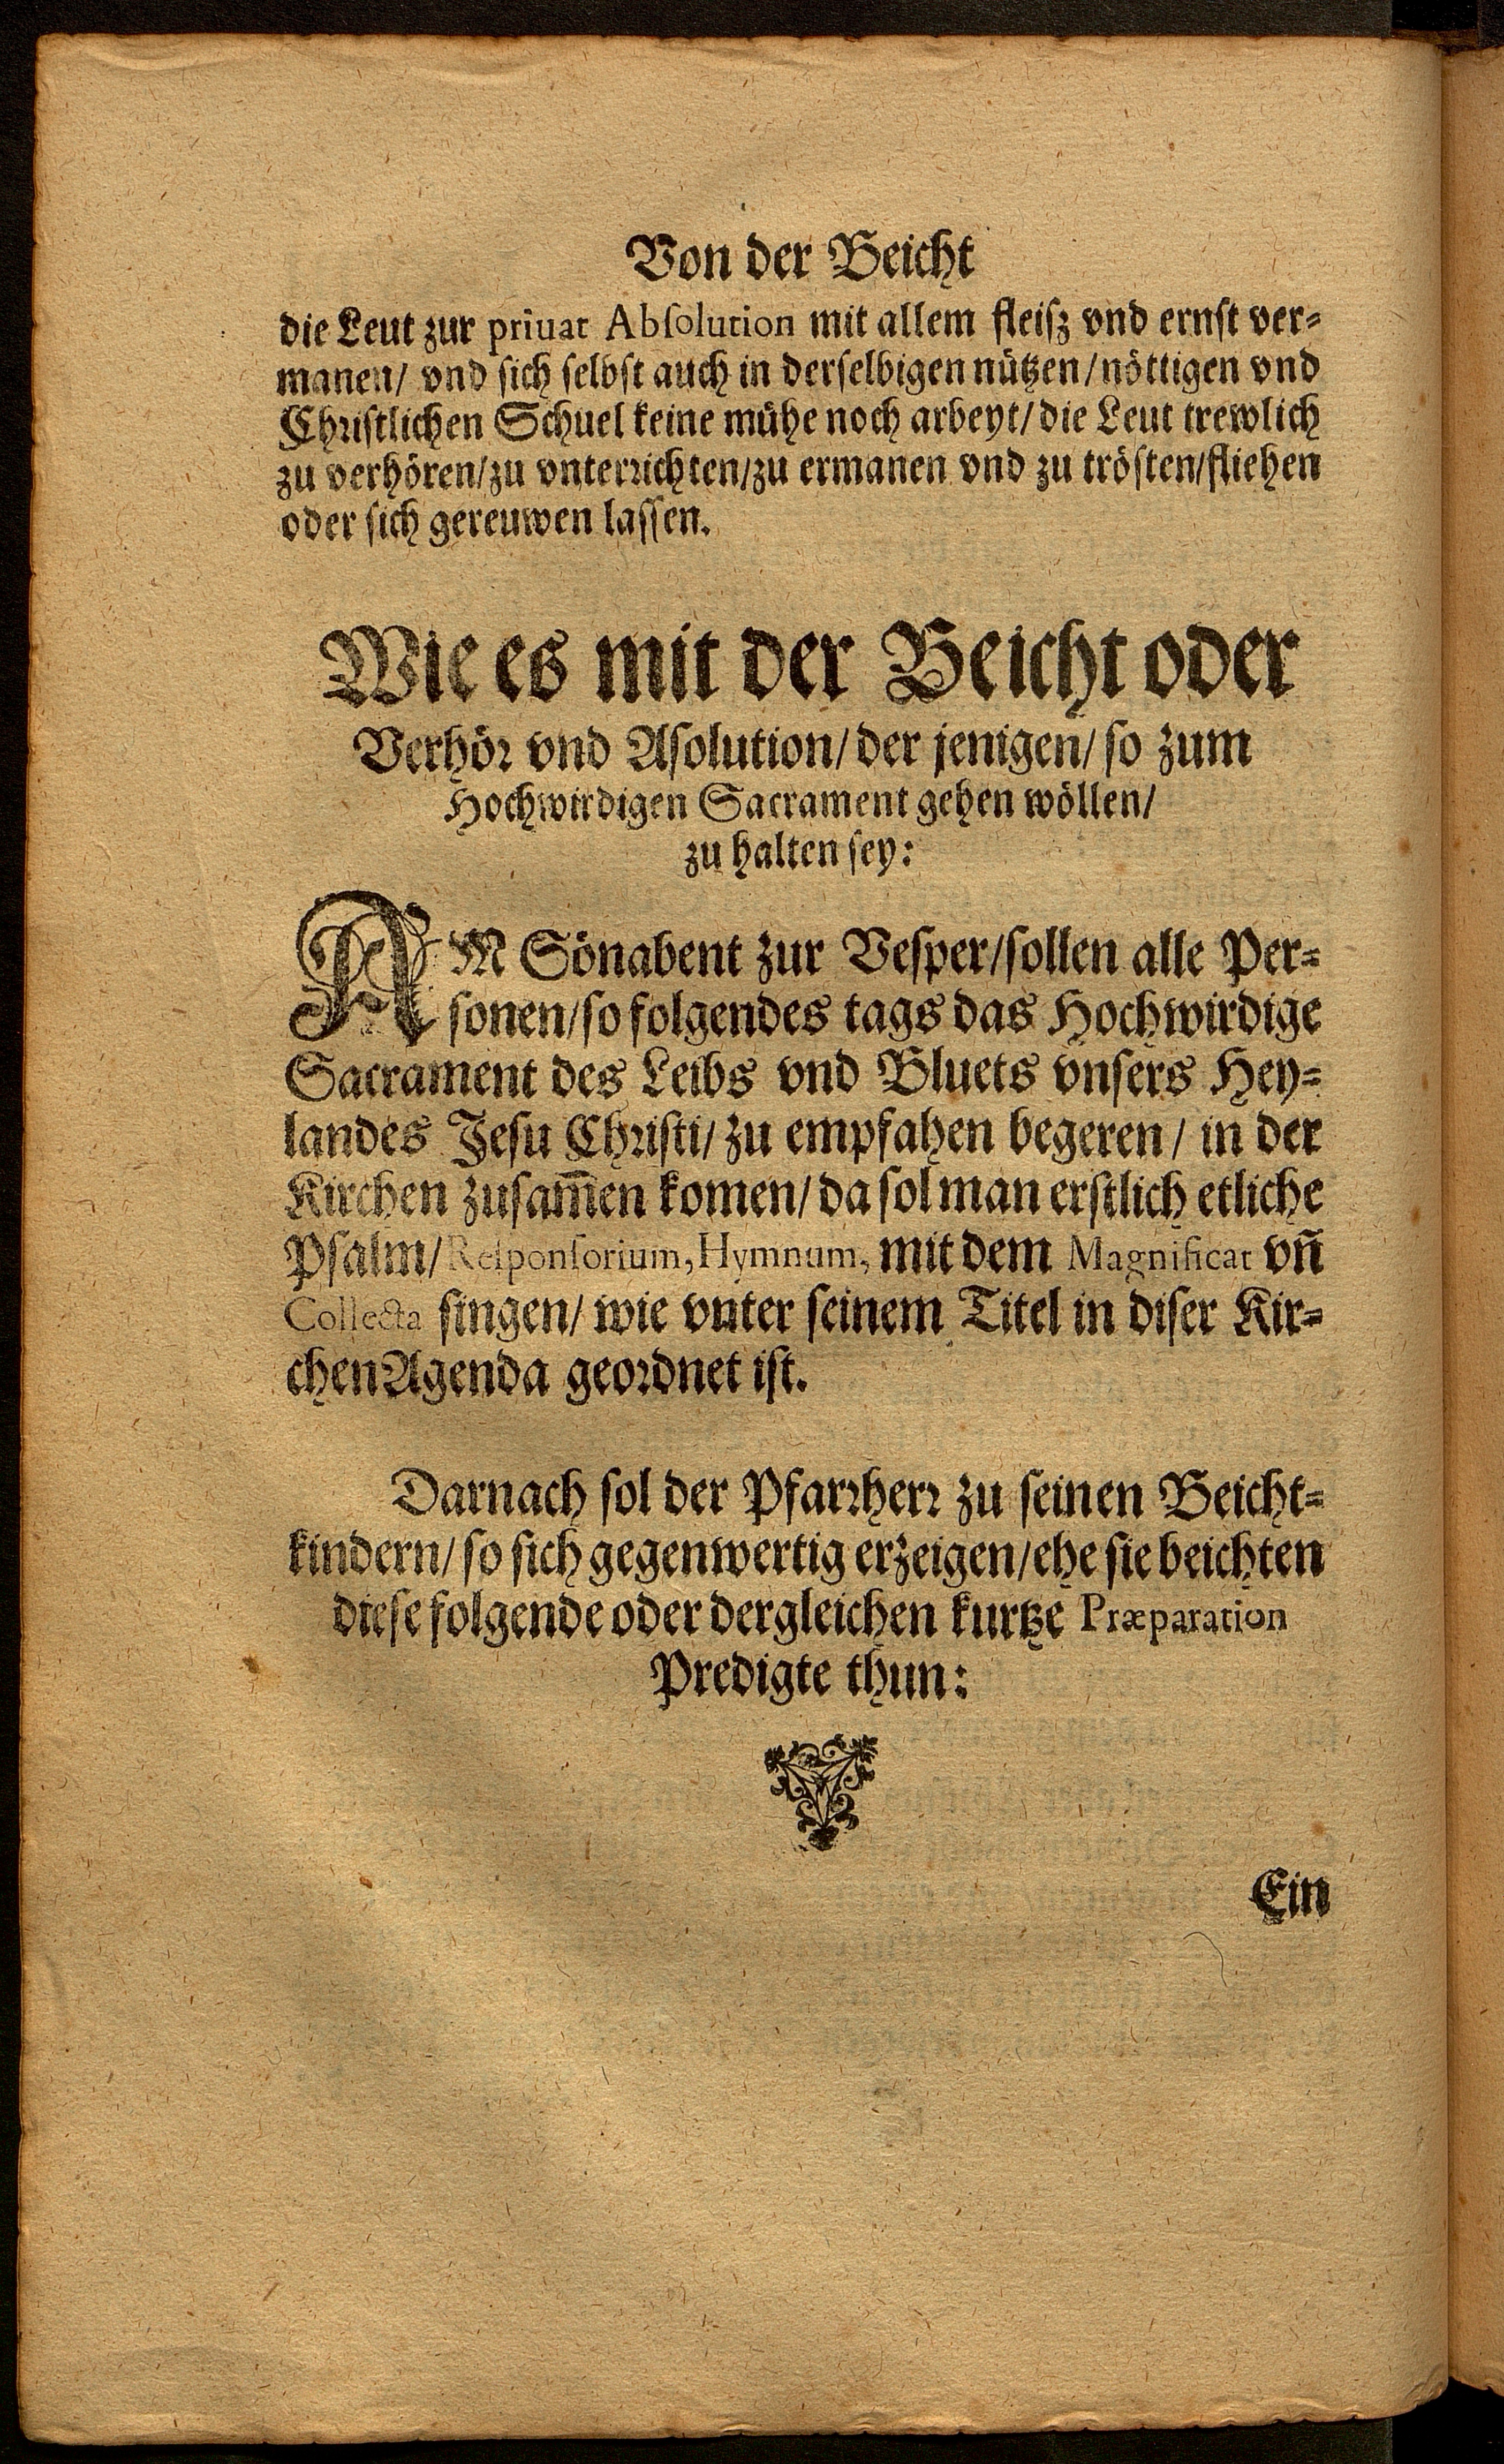 Von der Beicht
die Leut zur priuat Absolution mit allem fleisz vnd ernst ver=
manen/ vnd sich selbst auch in derselbigen nützen/nöttigen vnd
Christlichen Schuel keine mühe noch arbeyt/die Leut trewlich
zu verhören/zu vnterrichten/zu ermanen vnd zu trösten/fliehen
oder sich gereuwen lassen.
Wie es mit der Beicht oder
Verhör vnd Asolution/der jenigen/so zum
Hochwirdigen Sacrament gehen wöllen/
zu halten sey:
AM Sönabent zur Vesper/sollen alle Per=
sonen/so folgendes tags das Hochwirdige
Sacrament des Leibs vnd Bluets vnsers Hey=
landes Jesu Christi/zu empfahen begeren/ in der
Kirchen zusam̄en komen/da sol man erstlich etliche
Psalm/Responsorium, Hymnum, mit dem Magnificat vn̄
Collecta singen/ wie vnter seinem Titel in diser Kir=
chen Agenda geordnet ist.
Darnach sol der Pfarrherr zu seinen Beicht=
kindern/so sich gegenwertig erzeigen/ehe sie beichten
diese folgende oder dergleichen kurtze Præparation
Predigte thun:
Ein